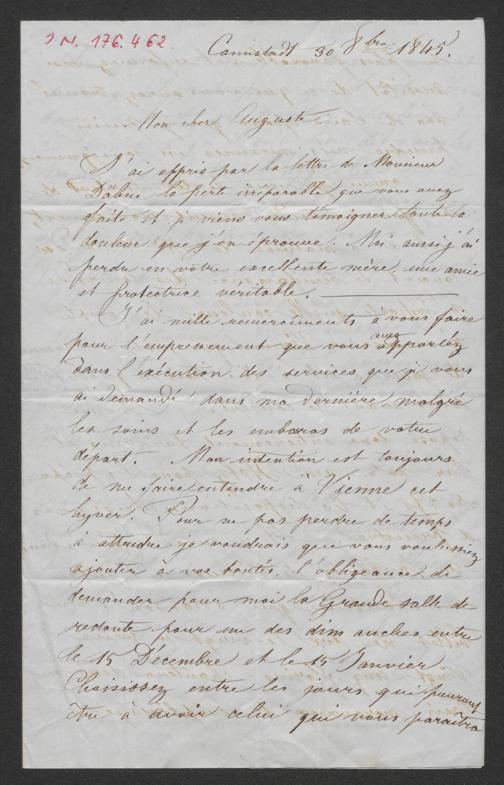 J.N. 176.462
Cannstadt 30 8bre 1845.
Mon cher Auguste
J'ai appris par la lettre de Monieur
Däbne la perte irréparable que vous avez
faite et je viens vous témoigner toute la
douleur que j'en éprouve. Moi aussi j'ai
perdu en votre excellente mère, une amie
et protectrice veritable.
J'ai mille remerciments à vous faire
pour l'empressement que vous avez apportéz
dans l'exécution des services que je vous
ai demandé dans ma dernière malgré
les soins et les embaras de votre
départ. Mon intention est toujours
de me faire entendre à Vienne cet
hyver. Pour ne pas perdre de temps
à attendre je voudrais que vous voulussiez
ajouter à vos bontés, l'obligeance de
demander pour moi la Grande salle de
redoute pour un des dimanches entre
le 15 Décembre et le 15 Janvier.
Choisissez entre les jours qui pourront
être à avoir celui qui vous paraîtra